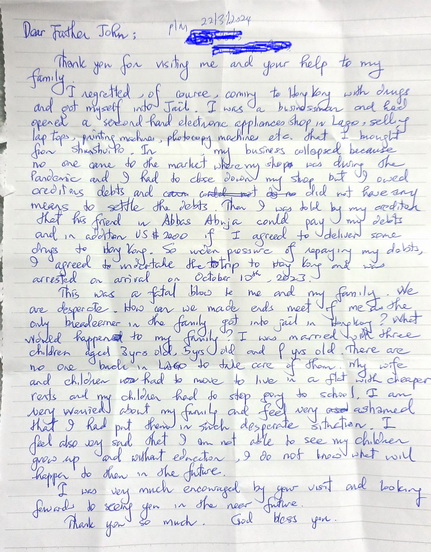 P/M 22/3/2024
Dear Father John;
Thank you for visiting me and your help to my
family.
I regretted, of course, coming to Hong Kong with drugs
and got myself into Jail. I was a businessman and had
opened a second hand electronic appliances shop in Lago, selling
lap tops, printing machine, photocopy machine etc. that I brought
from In my business collapsed because
no one came to the market where my shops was during the
Pandemic and I had to close down my shop but I owed
creditors debts and did not have any
means to settle the debts. Then I was told by my creditor
that his friend in Abbas Abuja could pay my debts
and in addition US$ 2000 if I agreed to deliver some
drugs to Hong Kong. So under pressure of repaying my debts,
I agreed to undertake the trip to Hong Kong and was
arrested on arrival on October 10th, 2023.
This was a fatal blow to me and my family. We
are desperate. How can we made ends meet if the
only breadearner in the family got into jail in ? What
would happened to my family? I was married with three
children aged 3 yrs old, 5 yrs old and yrs old. There are
no one back in LAGO to take care of them. My wife
and children had to move to live in a flat with cheaper
rents and my children had to stop going to school. I am
very worried about my family and feel very ashamed
that I had put them in such desperate situation. I
feel also very sad that I am not able to see my children
grow up and without education, I do not know what will
happen to them in the future.
I was very much encouraged by your visit and looking
forward to seeing you in the near future.
Thank you so much. God bless you.